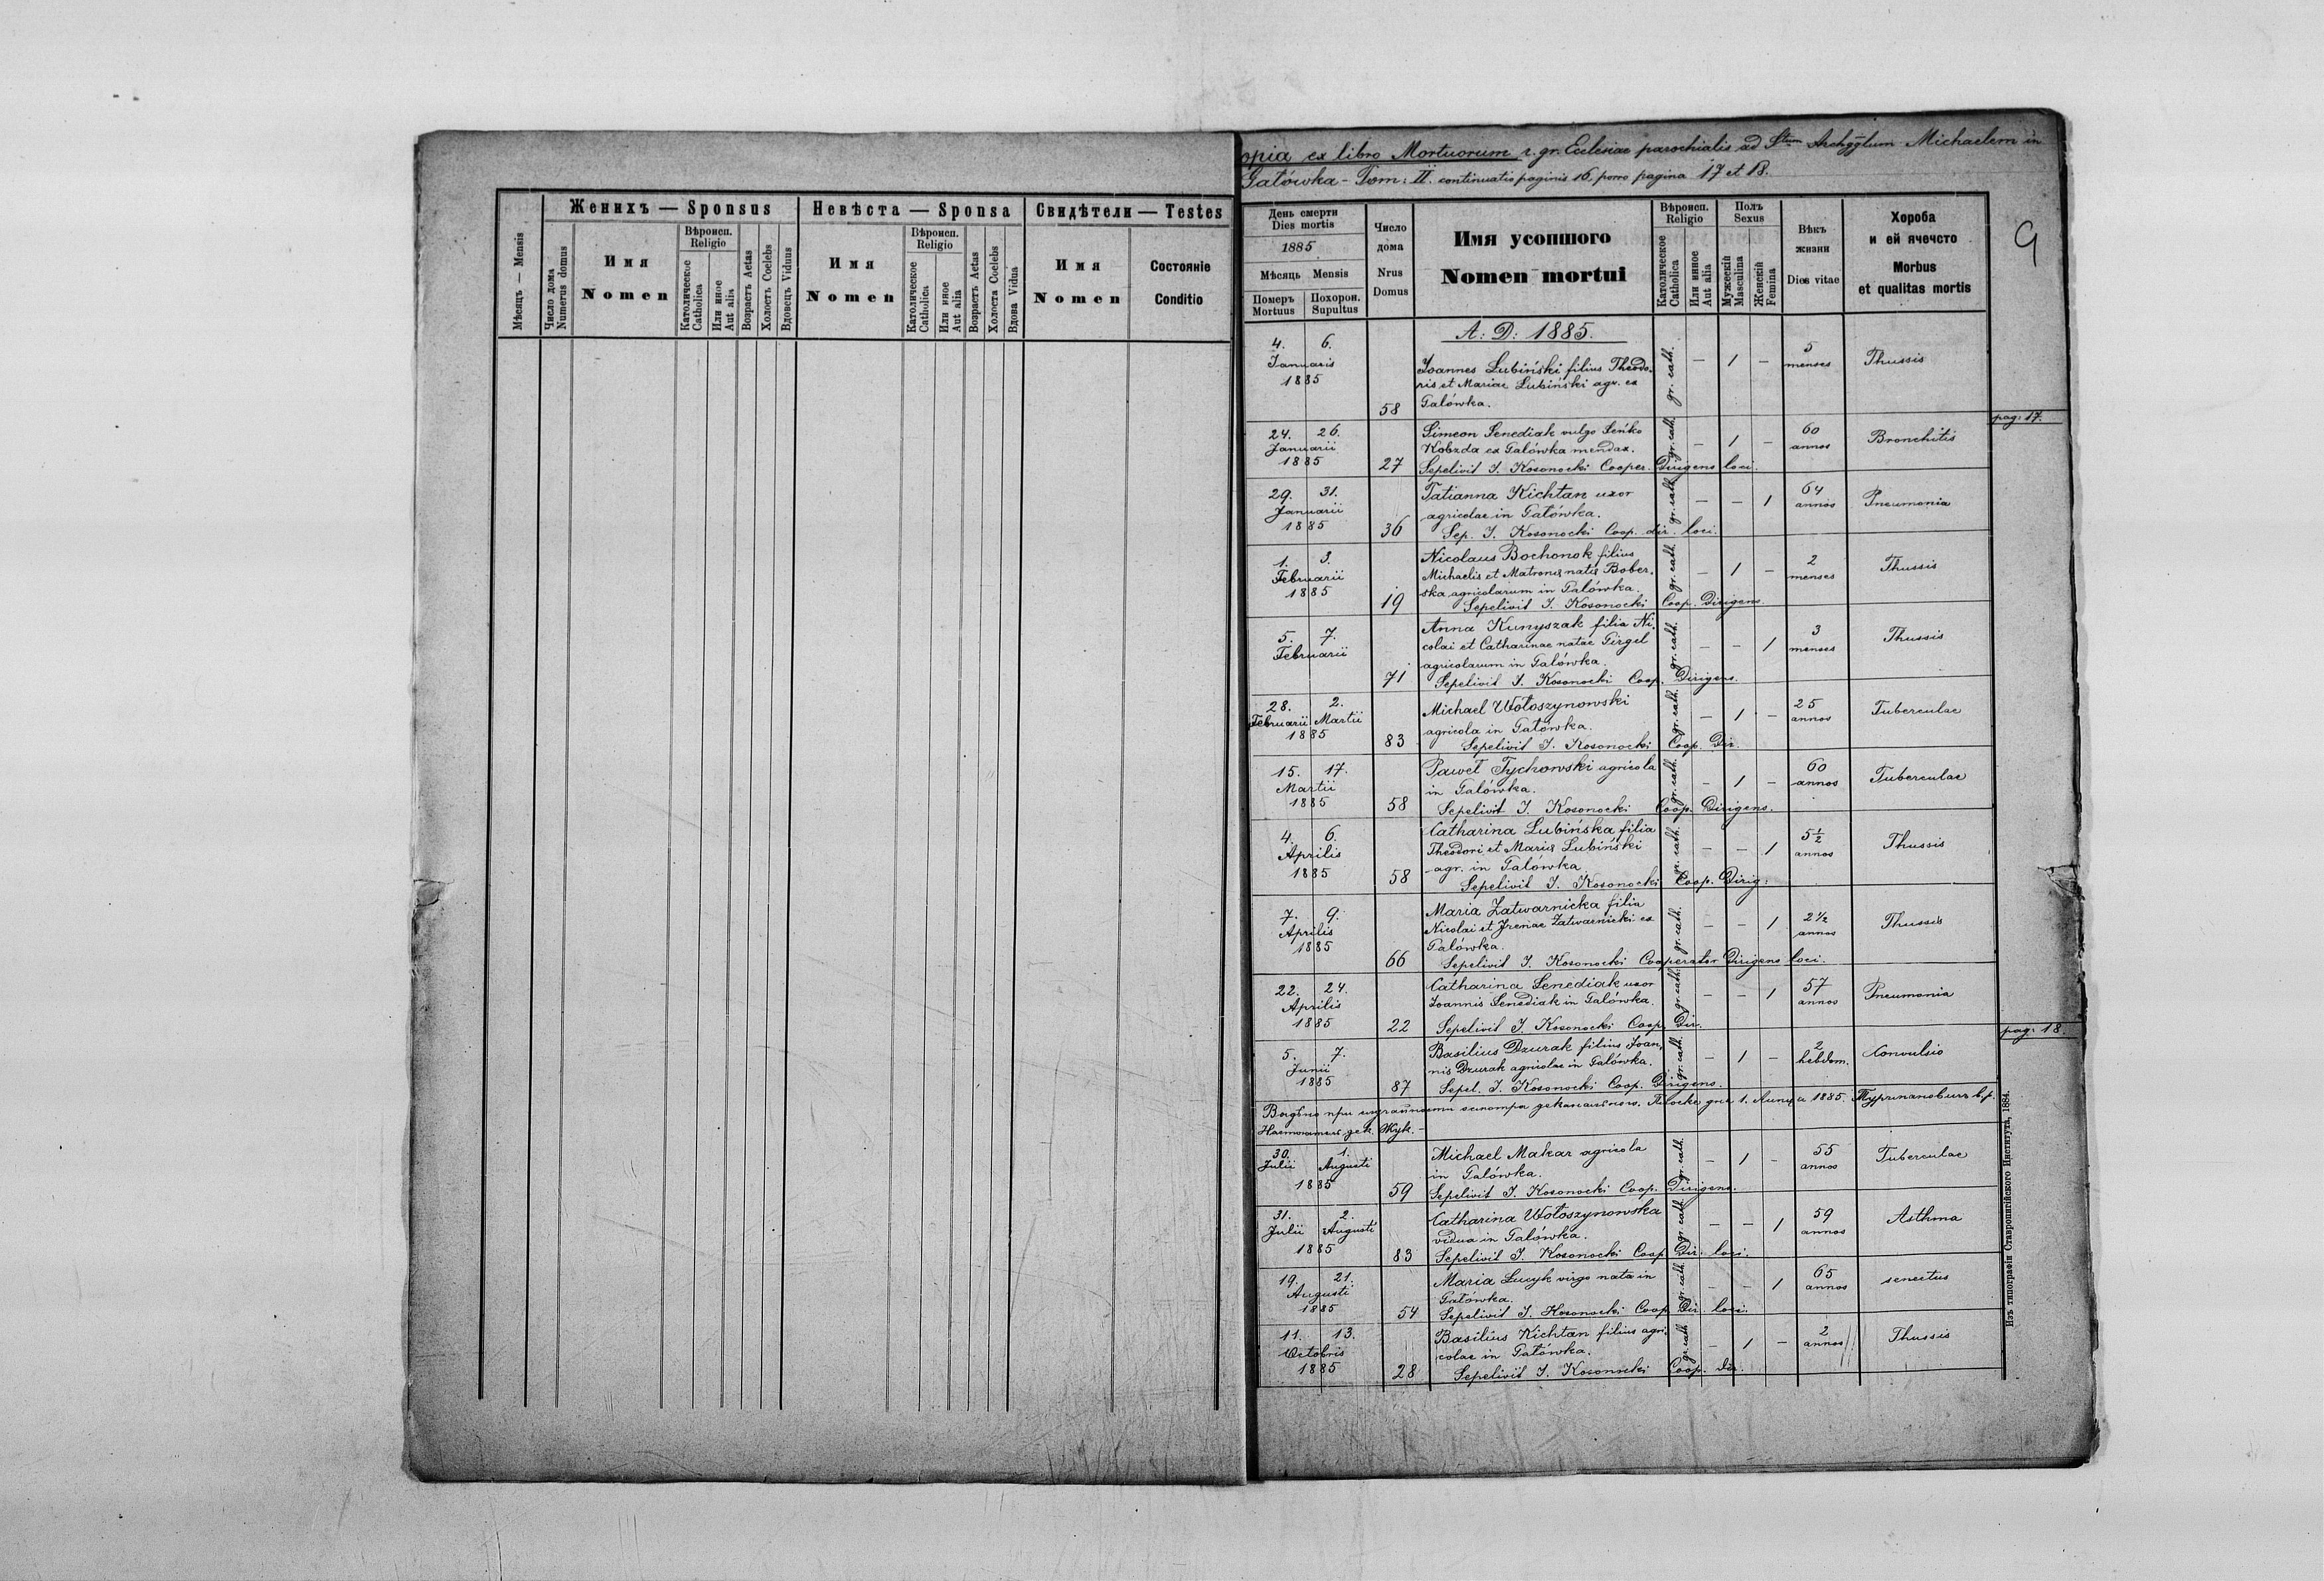 Женихъ — Sponsus
Невѣста — Sponsa
Свидѣтели — Testes
Мѣсяцъ — Mensis
Число дома
Numerus domus
Имя
Nomen
Вѣроисп.
Religio
Католическое
Catholica
Или иное
Aut alia
Возрастъ Aetas
Холостъ Coelebs
Вдовецъ Viduus
Имя
Nomen
Вѣроисп.
Religio
Католическое
Catholica
Или иное
Aut alia
Возрастъ Aetas
Холоста Coelebs
Вдова Vidua
Имя
Nomen
Состояніе
Conditio
opia ex libro Mortuorum r. gr. Ecclesiae parochialis ad Stum Archgglum Michaelem in
Galówka - Tom: II. continuatio paginis 16, porro pagina 17 et 18.
9
День смерти
Dies mortis
1885
Мѣсяць Mensis
Померъ
Mortuus
Похорон.
Supultus
Число
дома
Nrus
Domus
Имя усопшого
Nomen mortui
Вѣроисп.
Religio
Католическое
Catholica
Или инное
Aut alia
Полъ
Sexus
Мужескій
Masculina
Женскій
Femina
Вѣкъ
жизни
Dies vitae
Хороба
и ей ячечсто
Morbus
et qualitas mortis
A: D: 1885.
4. 6.
Januaris
1885
58
Joannes Lubiński filius Theodo-
ris et Mariae Lubiński agr. ex
Galówka.
gr. cath. – 1 –
5
menses
Thussis
pag: 17.
24. 26.
Januarii
1885
27
Simeon Senediak vulgo Seńko
Kobzda ex Galówka mendax.
Sepelivit J. Kosonocki Cooper. Dirigens loci.
gr. cath. – 1 –
60
annos
Bronchitis
29. 31.
Januarii
1885
36
Tatianna Kichtan uxor
agricolae in Galówka.
Sep. J. Kosonocki Coop. dir. loci.
gr. cath. – – 1
64
annos
Pneumonia
1. 3.
Februarii
1885
19
Nicolaus Bochonok filius
Michaelis et Matronis natis Bober-
ska agricolarum in Galówka.
Sepelivit J. Kosonocki Coop. Dirigens.
gr. cath. – 1 –
2
menses
Thussis
5. 7.
Februarii
71
Anna Kunyszak filia Ni-
colai et Catharinae natae Girgel
agricolarum in Galówka.
Sepelivit J. Kosonocki Coop. Dirigens.
gr. cath. – – 1
3
menses
Thussis
28. 2.
Februarii Martii
1885
83
Michael Wołoszynowski
agricola in Galówka.
Sepelivit J. Kosonocki Coop. Dir.
gr. cath. – 1 –
25
annos
Tuberculae
15. 17.
Martii
1885
58
Paweł Tychowski agricola
in Galówka.
Sepelivit J. Kosonocki Coop. Dirigens.
gr. cath. – 1 –
60
annos
Tuberculae
4. 6.
Aprilis
1885
58
Catharina Lubińska filia
Theodori et Maris Lubiński
agr. in Galówka
Sepelivit J. Kosonocki Coop. Dirig:
gr. cath. – – 1
5 1/2
annos
Thussis
7. 9.
Aprilis
1885
66
Maria Zatwarnicka filia
Nicolai et Irenae Zatwarnicki ex
Galówka.
Sepelivit J. Kosonocki Cooperator Dirigens loci.
gr. cath. – – 1
2 1/2
annos
Thussis
22. 24.
Aprilis
1885
22
Catharina Senediak uxor
Joannis Senediak in Galówka.
Sepelivit J. Kosonocki Coop. Dir.
gr. cath. – – 1
57
annos
Pneumonia
pag: 18.
5. 7.
Junii
1885
87
Basilius Dzurak filius Joan-
nis Dzurak agricolae in Galówka.
Sepel. J. Kosonocki Coop. Dirigens.
gr. cath. – 1 –
2
hebdom.
Convulsio
1885.
30. 1.
Julii Augusti
1885
59
Michael Makar agricola
in Galówka.
Sepelivit J. Kosonocki Coop. Dirigens.
gr. cath. – 1 –
55
annos
Tuberculae
31. 2.
Julii Augusti
1885
83
Catharina Wołoszynowska
vidua in Galówka.
Sepelivit J. Kosonocki Coop. Dir. loci.
gr. cath. – – 1
59
annos
Asthma
19. 21.
Augusti
1885
54
Maria Lucyk virgo nata in
Galówka.
Sepelivit J. Kosonocki Coop. Dir. loci.
gr. cath. – – 1
65
annos
senectus
11. 13.
Octobris
1885
28
Basilius Kichtan filius agri-
colae in Galówka.
Sepelivit J. Kosonocki Coop. dir.
gr. cath. – 1 –
2
annos
Thussis
Изъ типографіи Ставропигійского Института, 1884.